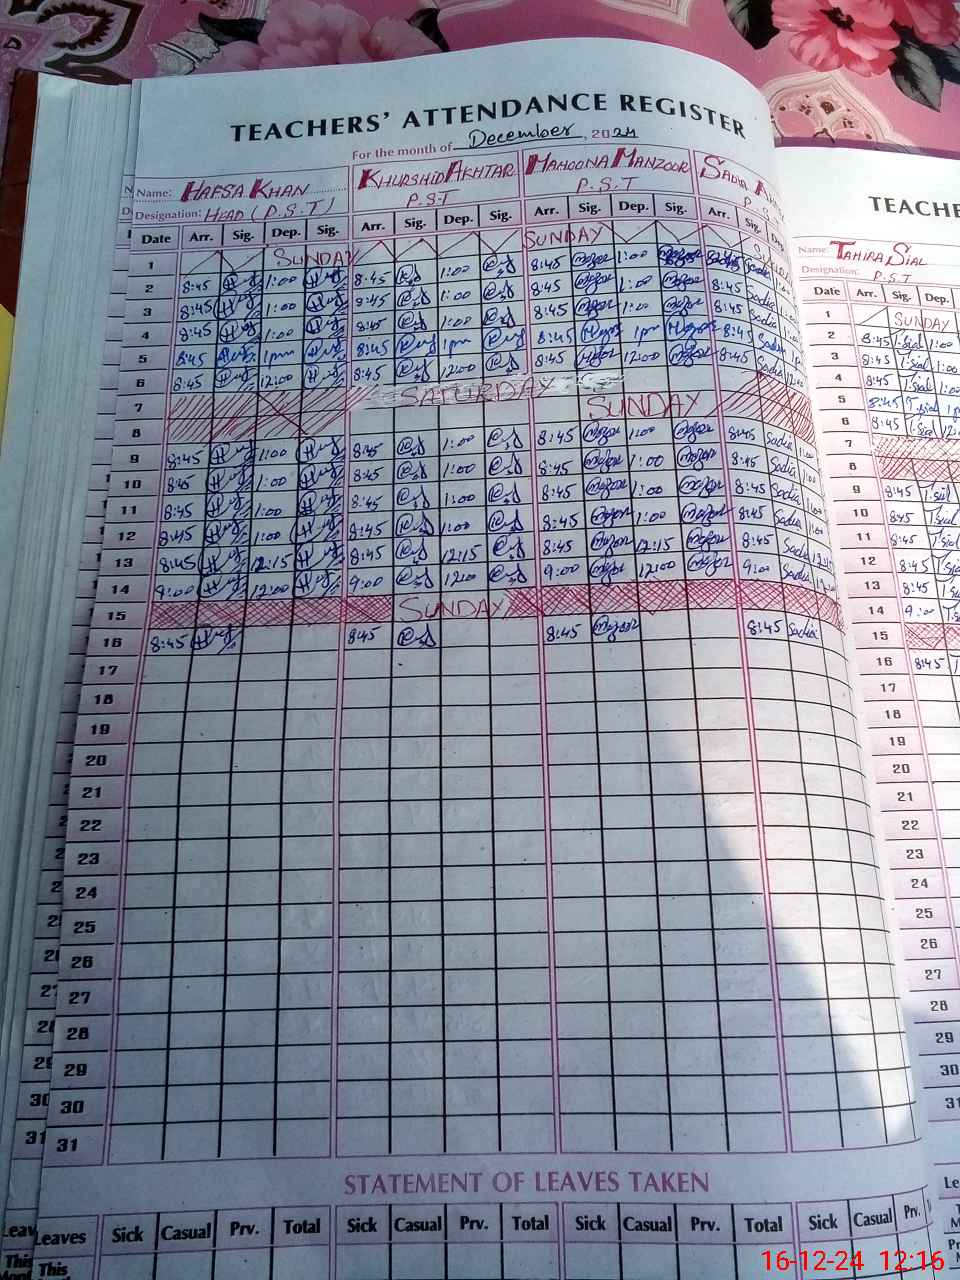 TEACHERS' ATTENDANCE REGISTER
For the month of December, 2024
Name: HAFSA KHAN KHURSHID AKHTAR MAMOONA MANZOOR SADIA
Designation: HEAD (P.S.T) P.S.T P.S.T P.S
Date Arr. Sig. Dep. Sig. Arr. Sig. Dep. Sig. Arr. Sig. Dep. Sig. Arr. Sig. Dep
1 SUNDAY SUNDAY SUNDAY
2 8:45 1:00 8:45 1:00 8:45 1:00 8:45 Sadia 1:00
3 8:45 1:00 8:45 1:00 8:45 1:00 8:45 Sadia 1:00
4 8:45 1:00 8:45 1:00 8:45 1:00 8:45 Sadia 1:00
5 8:45 1pm 8:45 1pm 8:45 1pm 8:45 Sadia 1p
6 8:45 12:00 8:45 12:00 8:45 12:00 8:45 Sadia 12:00
7 SATURDAY
8 SUNDAY
9 8:45 1:00 8:45 1:00 8:45 1:00 8:45 Sadia 1:00
10 8:45 1:00 8:45 1:00 8:45 1:00 8:45 Sadia 1:00
11 8:45 1:00 8:45 1:00 8:45 1:00 8:45 Sadia 1:00
12 8:45 1:00 8:45 1:00 8:45 1:00 8:45 Sadia 1:00
13 8:45 12:15 8:45 12:15 8:45 12:15 8:45 Sadia
14 9:00 12:00 9:00 12:00 9:00 12:00 9:00 Sadia
15 SUNDAY
16 8:45 8:45 8:45 8:45 Sadia
17
18
19
20
21
22
23
24
25
26
27
28
29
30
31
STATEMENT OF LEAVES TAKEN
Leaves Sick Casual Prv. Total Sick Casual Prv. Total Sick Casual Prv. Total Sick Casual Prv.
This
TEACHE
Name: TAHIRA SIAL
Designation: P.S.T
Date Arr. Sig. Dep.
1 SUNDAY
2 8:45 T.sial 1:00
3 8:45 T.sial 1:00
4 8:45 T.sial 1:00
5 8:45 T.sial 1p
6 8:45 T.sial 12:
7
8
9 8:45 T.sial
10 8:45 T.sial
11 8:45 T.sial
12 8:45 T.sial
13 8:45 T.sial
14 9:00 T.s
15
16 8:45 T
17
18
19
20
21
22
23
24
25
26
27
28
29
30
31
16-12-24 12:16